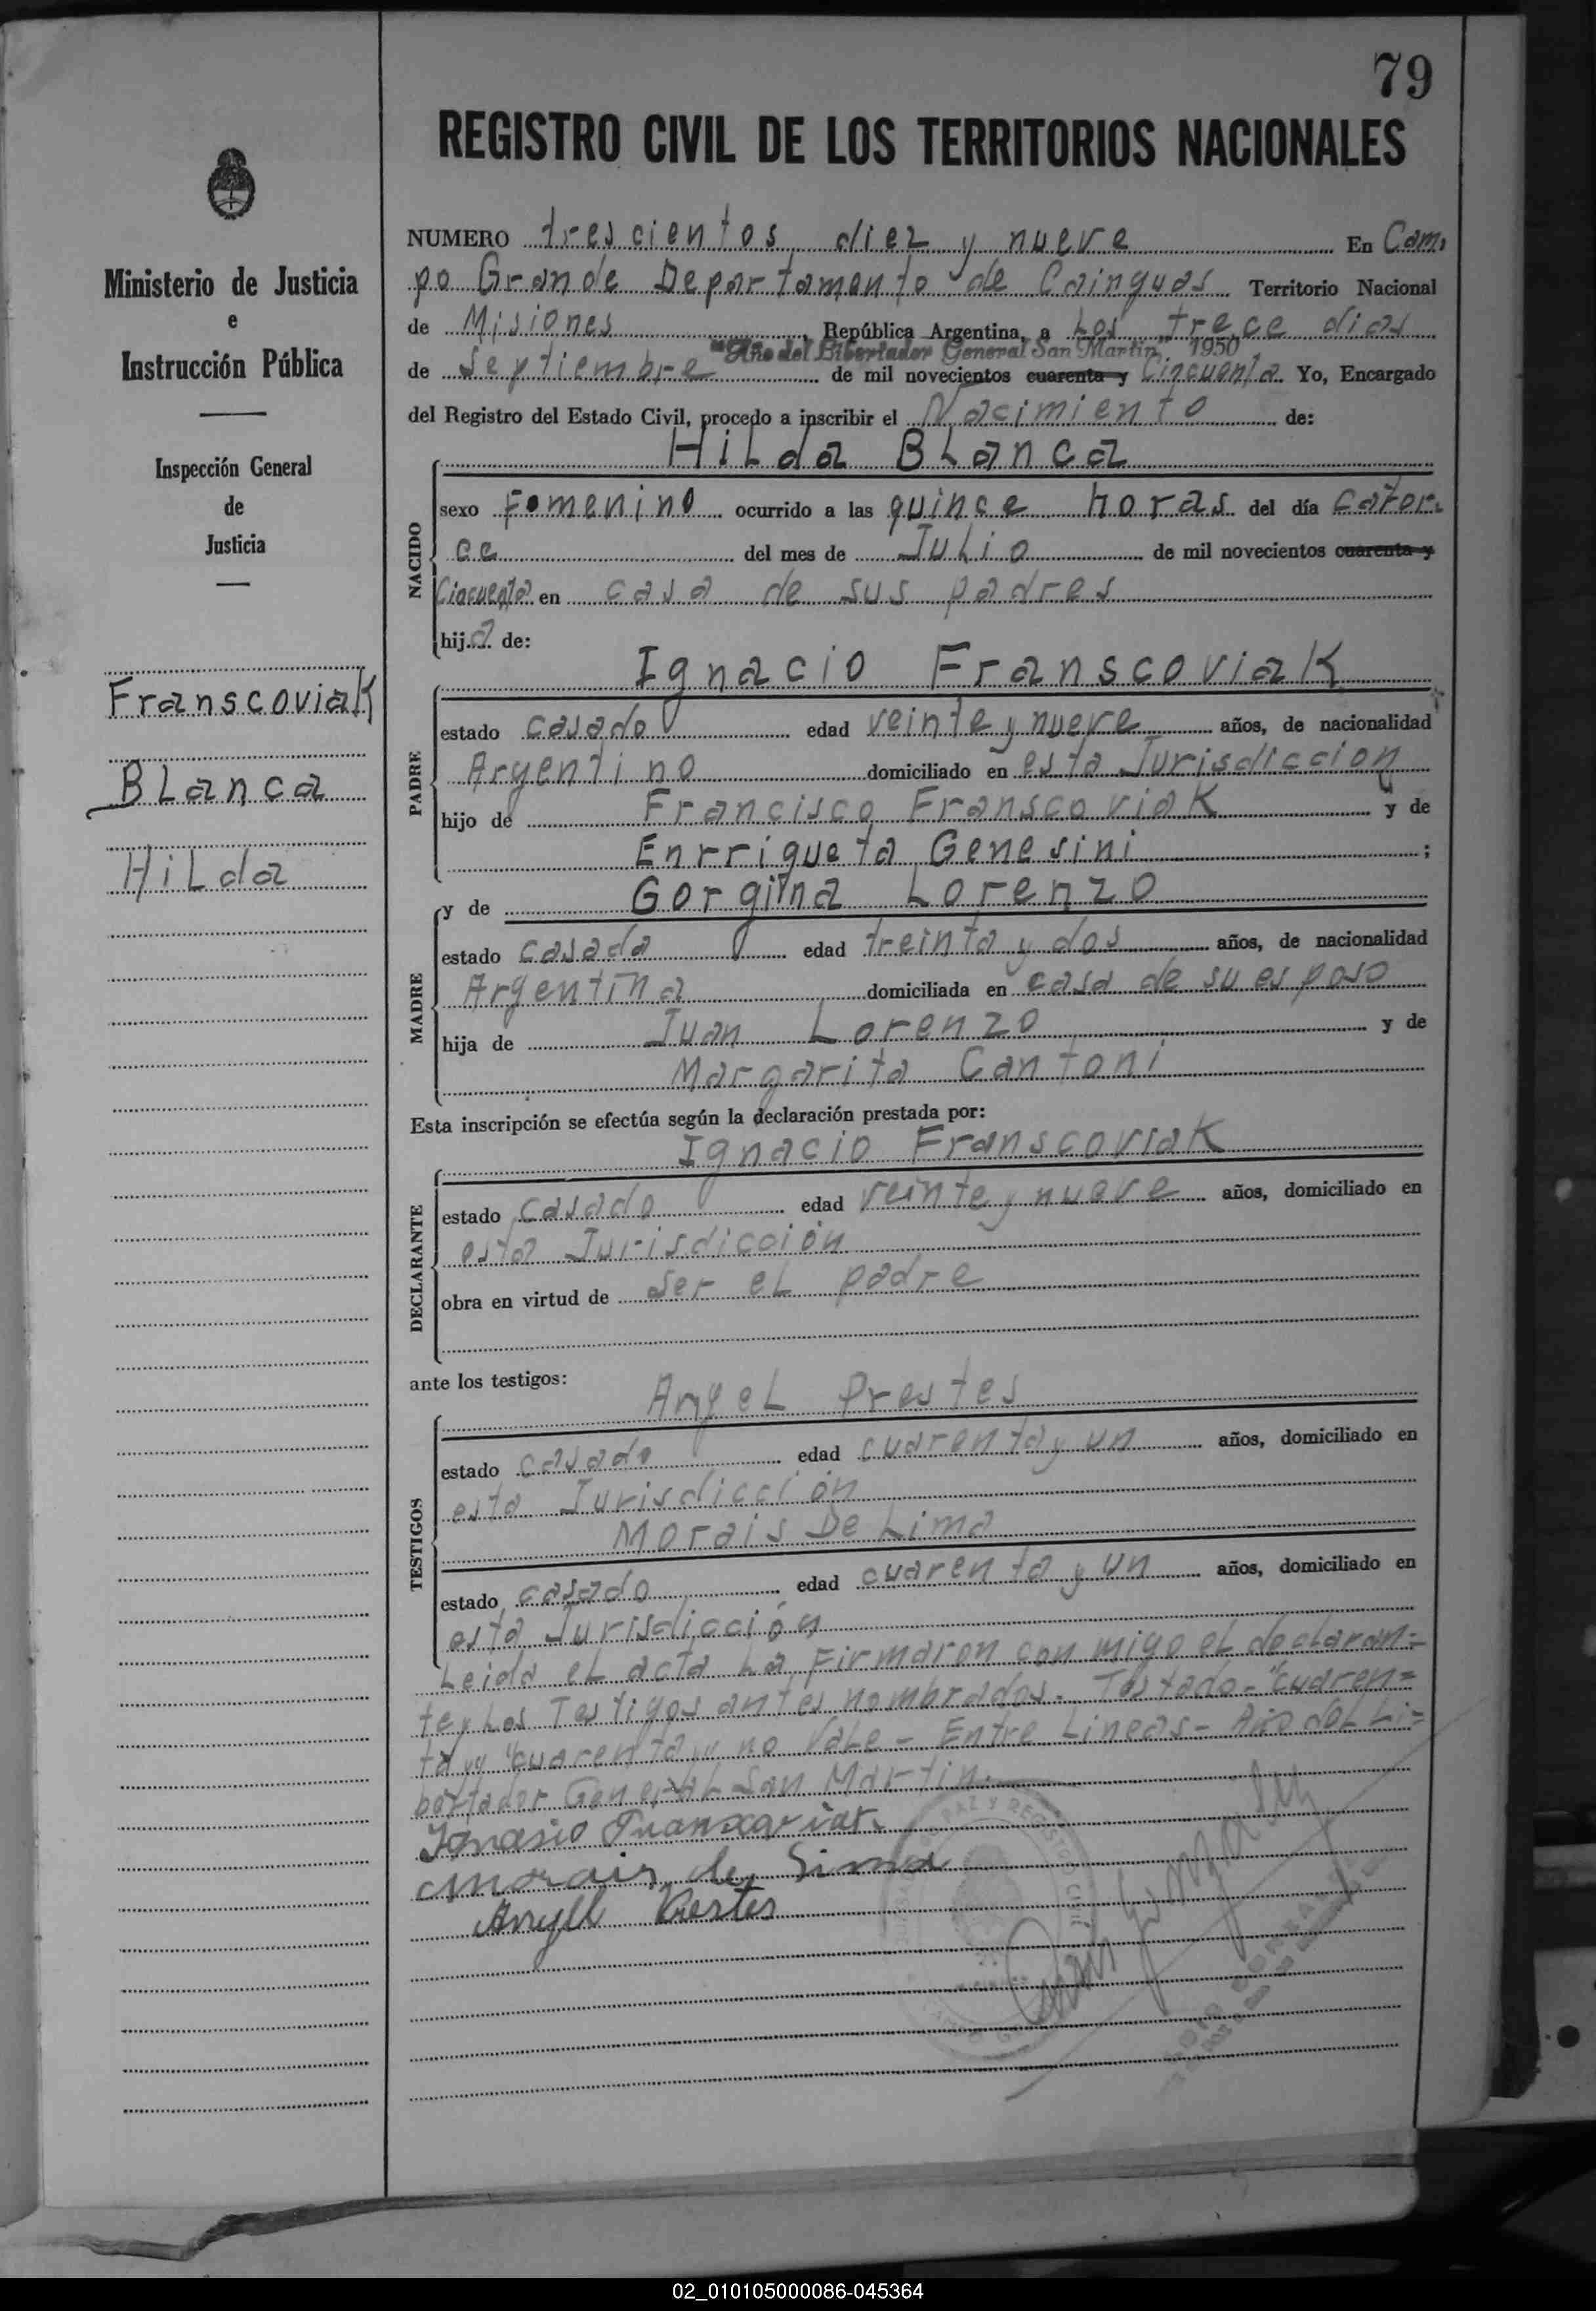 79
REGISTRO CIVIL DE LOS TERRITORIOS NACIONALES
Ministerio de Justicia
e
Instrucción Pública
Inspección General
de
Justicia
Franscoviak
Blanca
Hilda
NUMERO trescientos diez y nueve En Cam-
po Grande Departamento de Cainguas Territorio Nacional
de Misiones, República Argentina, a Los trece dias
"Año del Libertador General San Martín" 1950
de Septiembre de mil novecientos cuarenta y Cincuenta Yo, Encargado
del Registro del Estado Civil, procedo a inscribir el Nacimiento de:
Hilda Blanca
NACIDO
sexo Femenino ocurrido a las quince horas del día cator-
ce del mes de Julio de mil novecientos cuarenta y
Cincuenta en casa de sus padres
hija de:
Ignacio Franscoviak
PADRE
estado casado edad veinte y nueve años, de nacionalidad
Argentino domiciliado en esta Jurisdiccion
hijo de Francisco Franscoviak y de
Enrriqueta Genesini;
y de Gorgina Lorenzo
MADRE
estado casada edad treinta y dos años, de nacionalidad
Argentina domiciliada en casa de su esposo
hija de Juan Lorenzo y de
Margarita Cantoni
Esta inscripción se efectúa según la declaración prestada por:
Ignacio Franscoviak
DECLARANTE
estado casado edad veinte y nueve años, domiciliado en
esta Jurisdicción
obra en virtud de ser el padre
ante los testigos:
Angel Prestes
TESTIGOS
estado casado edad cuarenta y un años, domiciliado en
esta Jurisdicción
Morais De Lima
estado casado edad cuarenta y un años, domiciliado en
esta Jurisdicción
Leida el acta la Firmaron con migo el declaran=
te y Los Testigos antes nombrados. Testado- "cuaren=
ta y" "cuarenta y" no Vale - Entre Lineas - Año del Li=
bertador General San Martin.
Ignasio
Morais de Lima
Angel Prestes
PAZ Y REGISTRO CIVIL
02_010105000086-045364